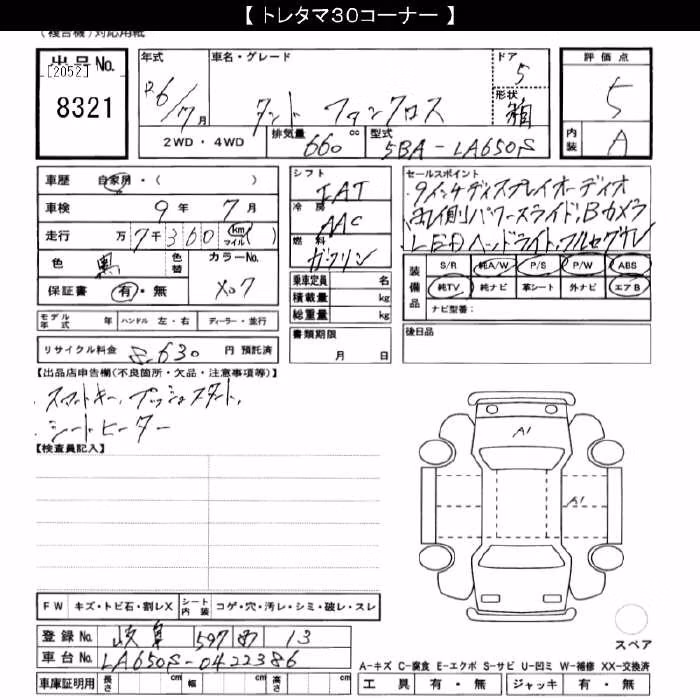 【 トレタマ30コーナー 】
(複合機)対応用紙
出品No.
[2052]
8321
年式 R6/7月
車名・グレード タント ファンクロス
ドア 5
形状 箱
2WD・4WD
排気量 660 cc
型式 5BA-LA650S
評価点 5
内装 A
車歴 自家用・( )
車検 9年 7月
走行 万7千360 (km マイル)
色 黒 色替
カラーNo. X07
保証書 有・無
シフト IAT
冷房 AAC
燃料 ガソリン
乗車定員 名
積載量 kg
総重量 kg
セールスポイント
・9インチディスプレイオーディオ
・左側パワースライド、Bカメラ
・LEDヘッドライト、フルセグTV
装備品
S/R 純A/W P/S P/W ABS
純TV 純ナビ 革シート 外ナビ エアB
ナビ型番:
モデル年式 年 ハンドル 左・右 ディーラー・並行
リサイクル料金 8,630 円 預託済
書類期限 月 日
後日品
【出品店申告欄(不良箇所・欠品・注意事項等)】
・スマートキー、プッシュスタート、
・シートヒーター
【検査員記入】
A1
A1
FW キズ・トビ石・割レX シート内装 コゲ・穴・汚レ・シミ・破レ・スレ
登録No. 岐阜 597 13
車台No. LA650S-0422386
車庫証明用 長さ cm 幅 cm 高さ cm
スペア
A-キズ C-腐食 E-エクボ S-サビ U-凹ミ W-補修 XX-交換済
工具 有・無 ジャッキ 有・無